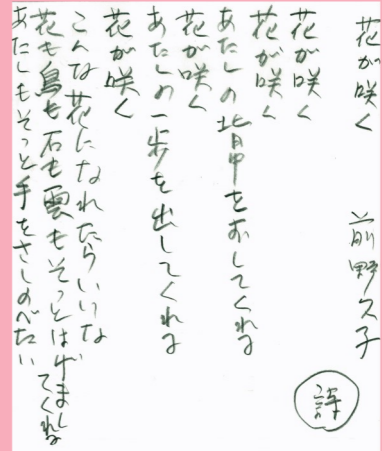 花が咲く　前野久子
詩
花が咲く
花が咲く
あたしの背中をおしてくれる
花が咲く
あたしの一歩を出してくれる
花が咲く
こんな花になれたらいいな
花も鳥も石も雲もそっとはげましてくれる
あたしもそっと手をさしのべたい